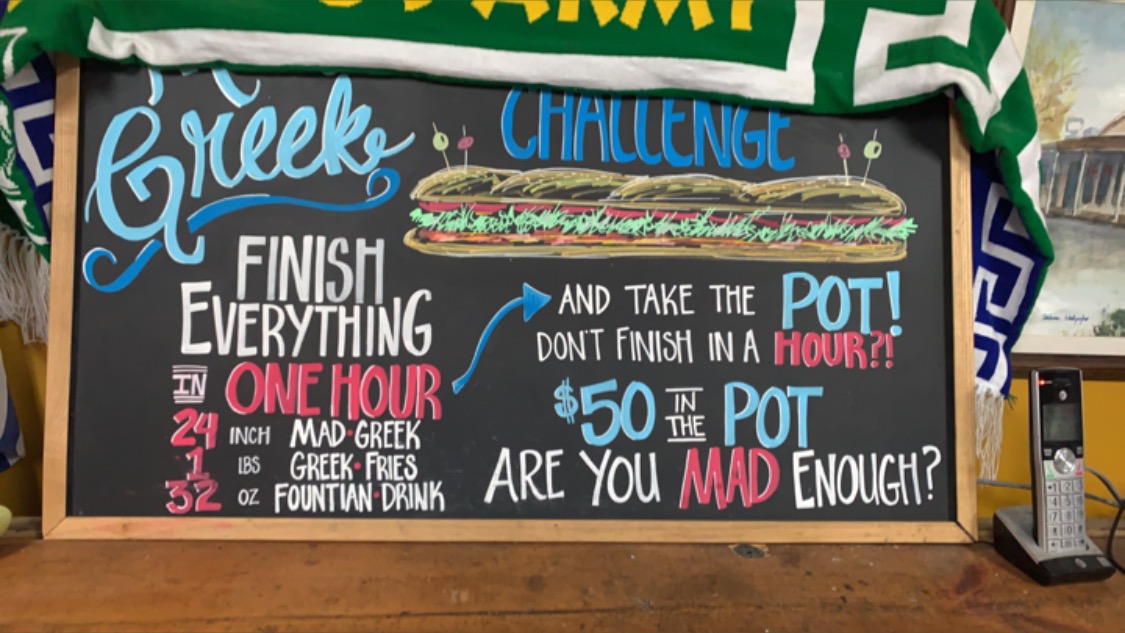 ARMY
Greek
CHALLENGE
FINISH
EVERYTHING
IN ONE HOUR
24 INCH MAD•GREEK
1 LBS GREEK•FRIES
32 OZ FOUNTIAN•DRINK
AND TAKE THE POT!
DON'T FINISH IN A HOUR?!
$50 IN THE POT
ARE YOU MAD ENOUGH?